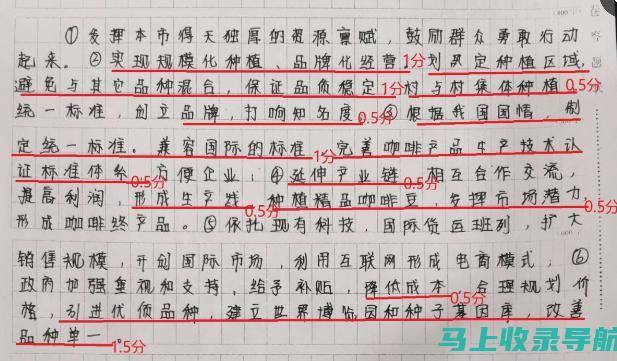 ①发挥本市得天独厚的资源禀赋，鼓励群众勇敢行动
起来。②实现规模化种植、品牌化经营1分划界定种植区域，
避免与其它品种混合，保证品质稳定1分村与村集体种植0.5分
统一标准，创立品牌，打响知名度。0.5分③根据我国国情，制
定统一标准。兼容国际的标准1分完善咖啡产品生产技术认
证标准体系0.5分方便企业；④延伸产业链0.5分相互合作交流，
提高利润，形成生产线0.5分种植精品咖啡豆，发挥市场潜力0.5分
形成咖啡终产品。⑤依托现有科技，国际货运班列，扩大
销售规模，开创国际市场，利用互联网形成电商模式；⑥
政府加强重视和支持，给予补贴，降低成本0.5分合理规划价
格，引进优质品种，建立世界博览园和种子基因库，改善
品种单一。1.5分
马上收录导航